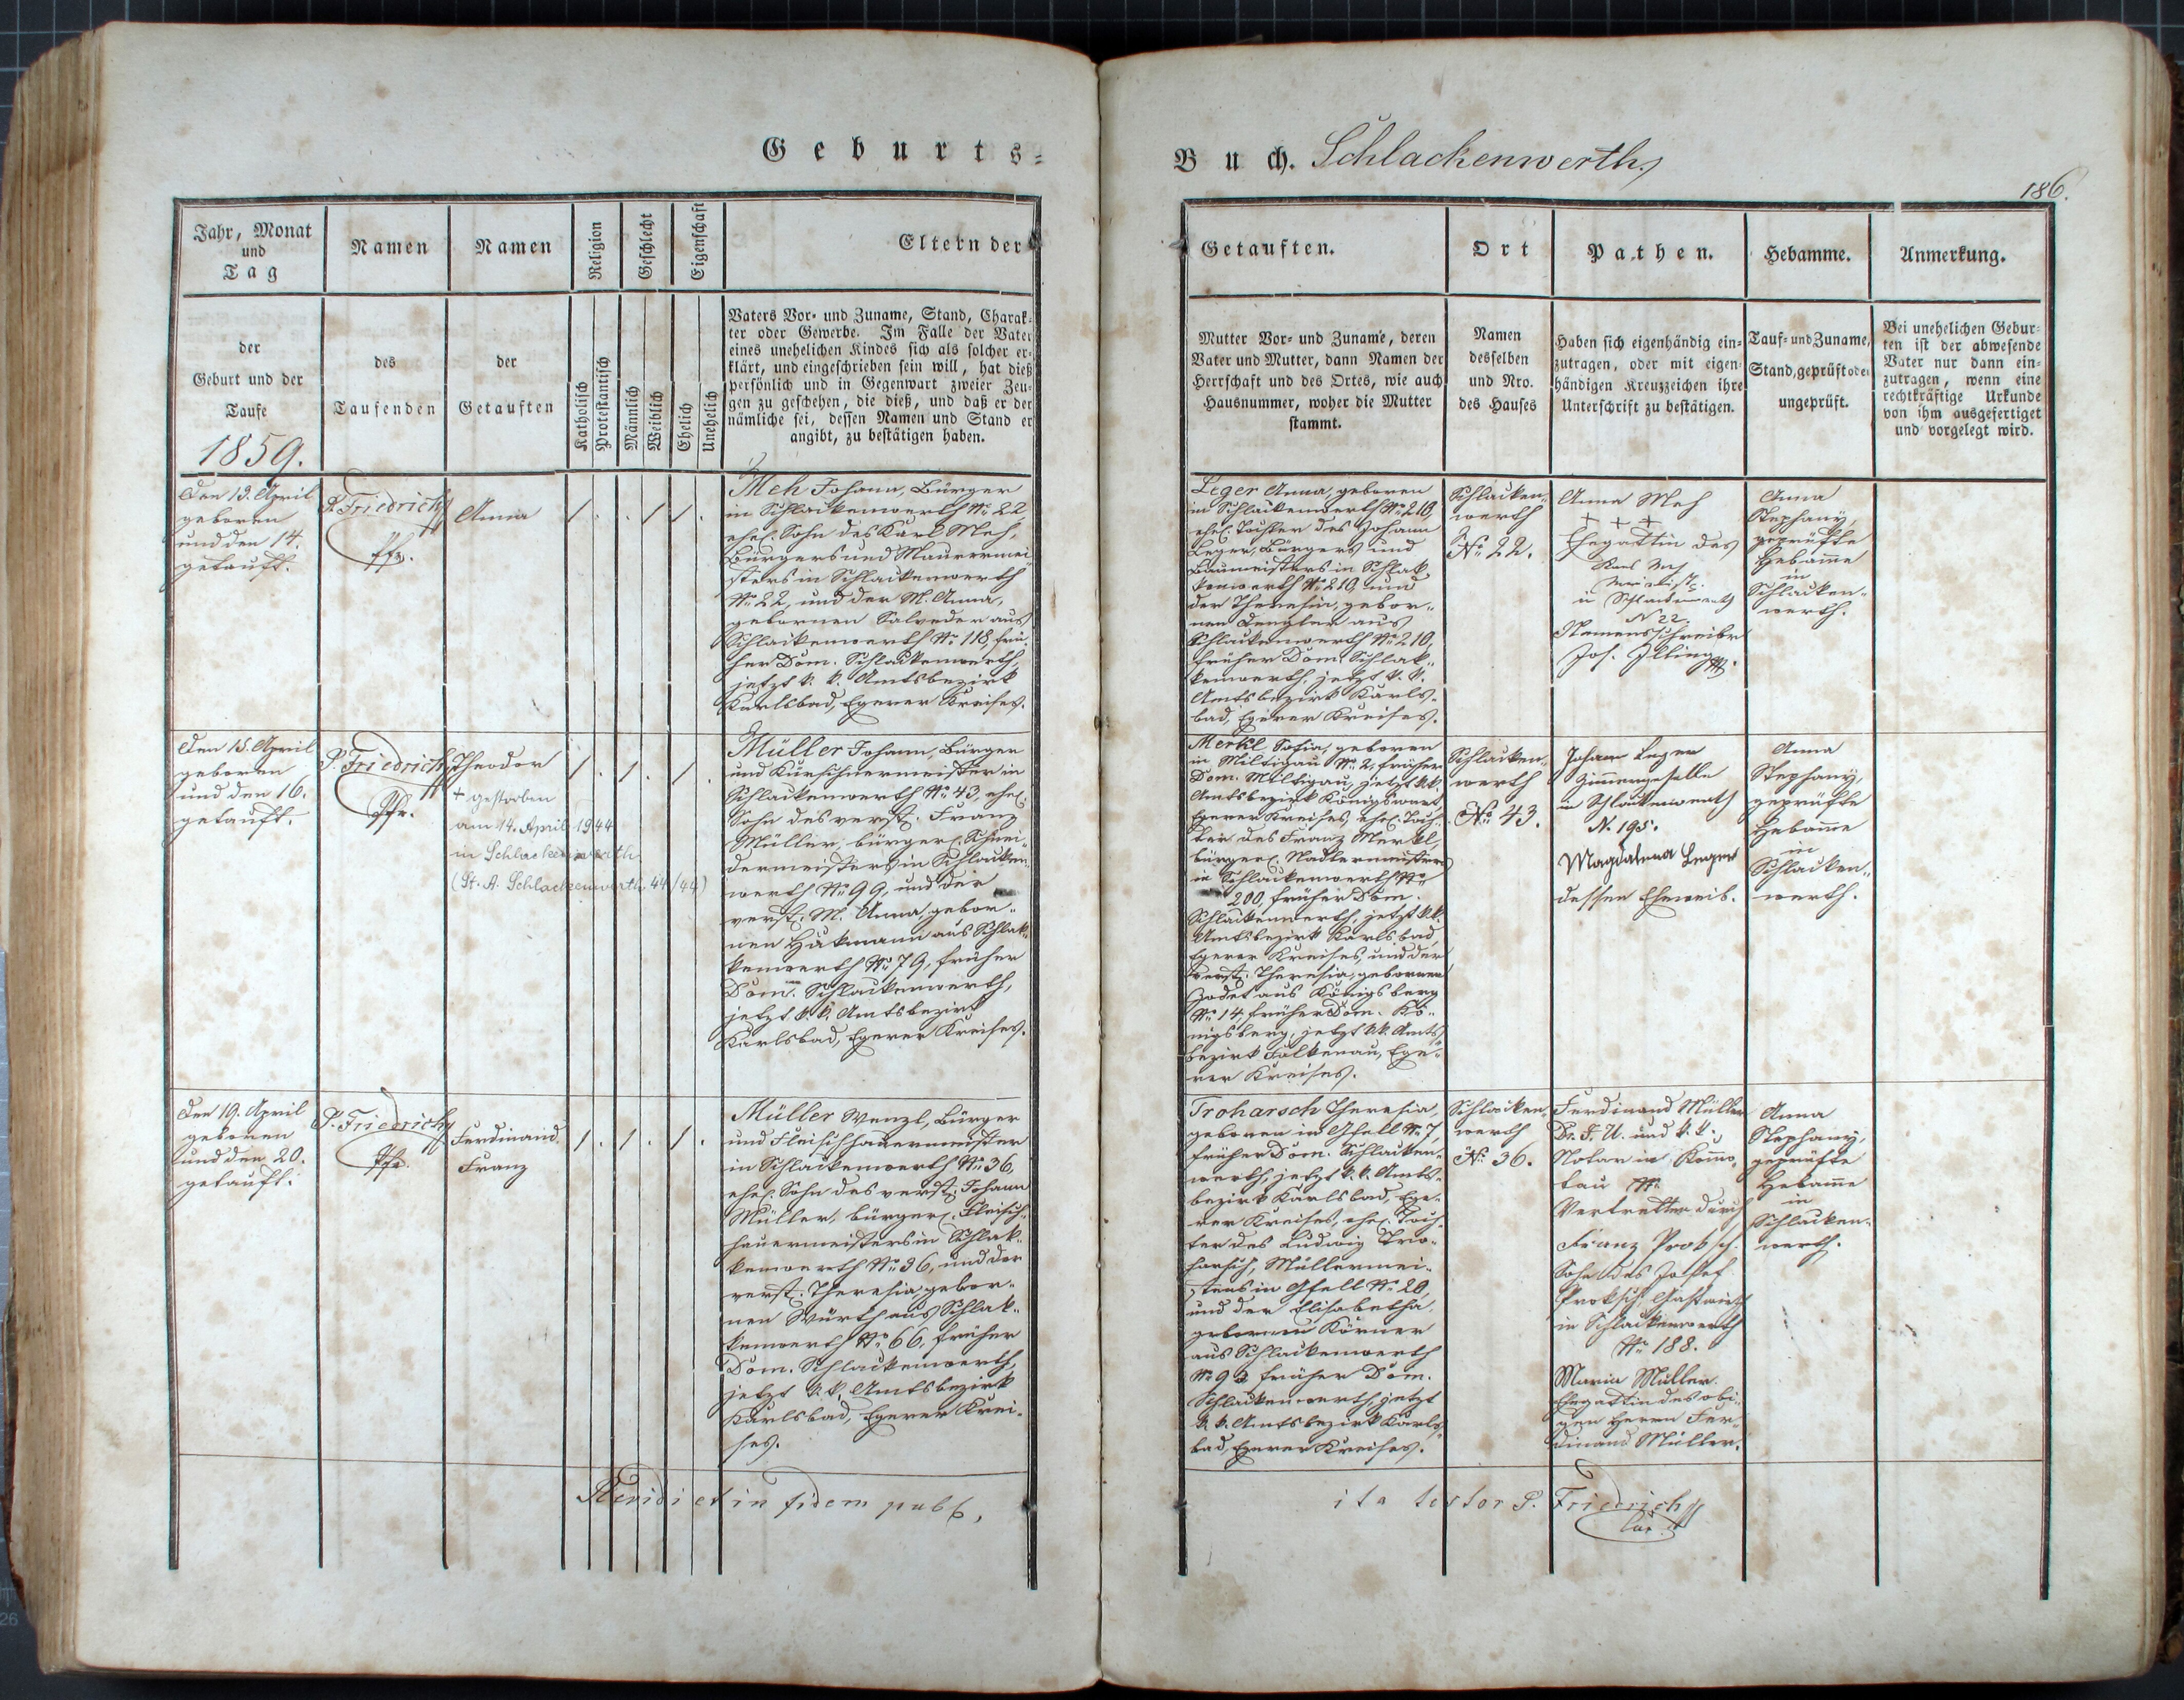 Geburts-
Buch. Schlackenwerth
186.
Jahr, Monat
und
Tag
der
Geburt und der
Taufe
1859.
Namen
des
Taufenden
Namen
der
Getauften
Religion
Katholisch
Protestantisch
Geschlecht
Männlich
Weiblich
Eigenschaft
Ehelich
Unehelich
Eltern der
Vaters Vor- und Zuname, Stand, Charak-
ter oder Gewerbe. Im Falle der Vater
eines unehelichen Kindes sich als solcher er-
klärt, und eingeschrieben sein will, hat dieß
persönlich und in Gegenwart zweier Zeu-
gen zu geschehen, die dieß, und daß er der
nämliche sei, dessen Namen und Stand er
angibt, zu bestätigen haben.
Getauften.
Mutter Vor- und Zuname, deren
Vater und Mutter, dann Namen der
Herrschaft und des Ortes, wie auch
Hausnummer, woher die Mutter
stammt.
Ort
Namen
desselben
und Nro.
des Hauses
Pathen.
Haben sich eigenhändig ein-
zutragen, oder mit eigen-
händigen Kreuzzeichen ihre
Unterschrift zu bestätigen.
Hebamme.
Tauf- und Zuname,
Stand, geprüft oder
ungeprüft.
Anmerkung.
Bei unehelichen Gebur-
ten ist der abwesende
Vater nur dann ein-
zutragen, wenn eine
rechtkräftige Urkunde
von ihm ausgefertiget
und vorgelegt wird.
Den 13. April
geboren
und den 14.
getauft.
P. Friedrich
Pfr.
Anna
/ . . / / .
Meh Johann, Bürger
in Schlackenwerth No 22
ehel. Sohn des Karl Meh,
Bürgers und Maurermei-
sters in Schlackenwerth
No 22, und der M. Anna,
gebornen Salveder aus
Schlackenwerth No 118, frü-
her Dom. Schlackenwerth,
jetzt k. k. Amtsbezirk
Karlsbad, Egerer Kreises.
Leger Anna, geboren
in Schlackenwerth No 210,
ehel. Tochter des Johann
Leger, Bürgers und
Baumeisters in Schlak-
kenwerth No 210, und
der Theresia, gebor-
nen aus
Schlackenwerth No 210,
früher Dom. Schlak-
kenwerth, jetzt k. k.
Amtsbezirk Karls-
bad, Egerer Kreises.
Schlacken-
werth
No 22.
Anna Meh
+ + +
Ehegattin des
Karl Meh
in Schlackenwerth
N 22.
Namensschreiber
Jos. Illing
Anna
Stephany,
geprüfte
Hebamme
in
Schlacken-
werth.
Den 15. April
geboren
und den 16.
getauft.
P. Friedrich
Pfr.
Theodor
+ gestorben
am 14. April 1944
in Schlackenwerth
(St. A. Schlackenwerth 44/44)
/ . / . / .
Müller Johann, Bürger
und Kürschnermeister in
Schlackenwerth No 43, ehel.
Sohn des verst. Franz
Müller, bürgerl. Schnei-
dermeisters in Schlacken-
werth No 99, und der
verst. M. Anna, gebor-
nen Hükmann aus Schlak-
kenwerth No 79, früher
Dom. Schlackenwerth,
jetzt k. k. Amtsbezirk
Karlsbad, Egerer Kreises.
Merkl Sofia, geboren
in Miltigau No 2, früher
Dom. Miltigau, jetzt k. k.
Amtsbezirk Königswart,
Egerer Kreises, ehel. Toch-
ter des Franz Merkl,
bürgerl. Nadlermeisters
in Schlackenwerth No
200, früher Dom.
Schlackenwerth, jetzt k. k.
Amtsbezirk Karlsbad,
Egerer Kreises, und der
verst. Theresia, gebornen
aus Königsberg
No 14, früher Dom. Kö-
nigsberg, jetzt k. k. Amts-
bezirk Falkenau, Ege-
rer Kreises.
Schlacken-
werth
No 43.
Johann Leger
Zimmergeselle
in Schlackenwerth
N. 195.
Magdalena Leger
dessen Eheweib.
Anna
Stephany,
geprüfte
Hebamme
in
Schlacken-
werth.
Den 19. April
geboren
und den 20.
getauft.
P. Friedrich
Pfr.
Ferdinand
Franz
/ . / . / .
Müller Wenzl, Bürger
und Fleischhauermeister
in Schlackenwerth No 36,
ehel. Sohn des verst. Johann
Müller, bürgerl. Fleisch-
hauermeisters in Schlak-
kenwerth No 36, und der
verst. Theresia, gebor-
nen Würth aus Schlak-
kenwerth No 66, früher
Dom. Schlackenwerth,
jetzt k. k. Amtsbezirk
Karlsbad, Egerer Krei-
ses.
Troharsch Theresia,
geboren in Gfell No 7,
früher Dom. Schlacken-
werth, jetzt k. k. Amts-
bezirk Karlsbad, Ege-
rer Kreises, ehel. Toch-
ter des Ludwig Tro-
harsch, Müllermei-
sters in Gfell No 20,
und der Elisabetha,
gebornen Körner
aus Schlackenwerth
No 93, früher Dom.
Schlackenwerth, jetzt
k. k. Amtsbezirk Karls-
bad, Egerer Kreises.
Schlacken-
werth
No 36.
Ferdinand Müller
Dr. J. U. und k. k.
Notar in Komo-
tau
Vertretten durch
Franz Proksch
Sohn des Josef
Proksch Gastwirth
in Schlackenwerth
No 188.
Maria Müller
Ehegattin des obi-
gen Herrn Fer-
dinand Müller.
Anna
Stephany,
geprüfte
Hebamme
in
Schlacken-
werth.
Revidi et in fidem publ.
ita testor P. Friedrich